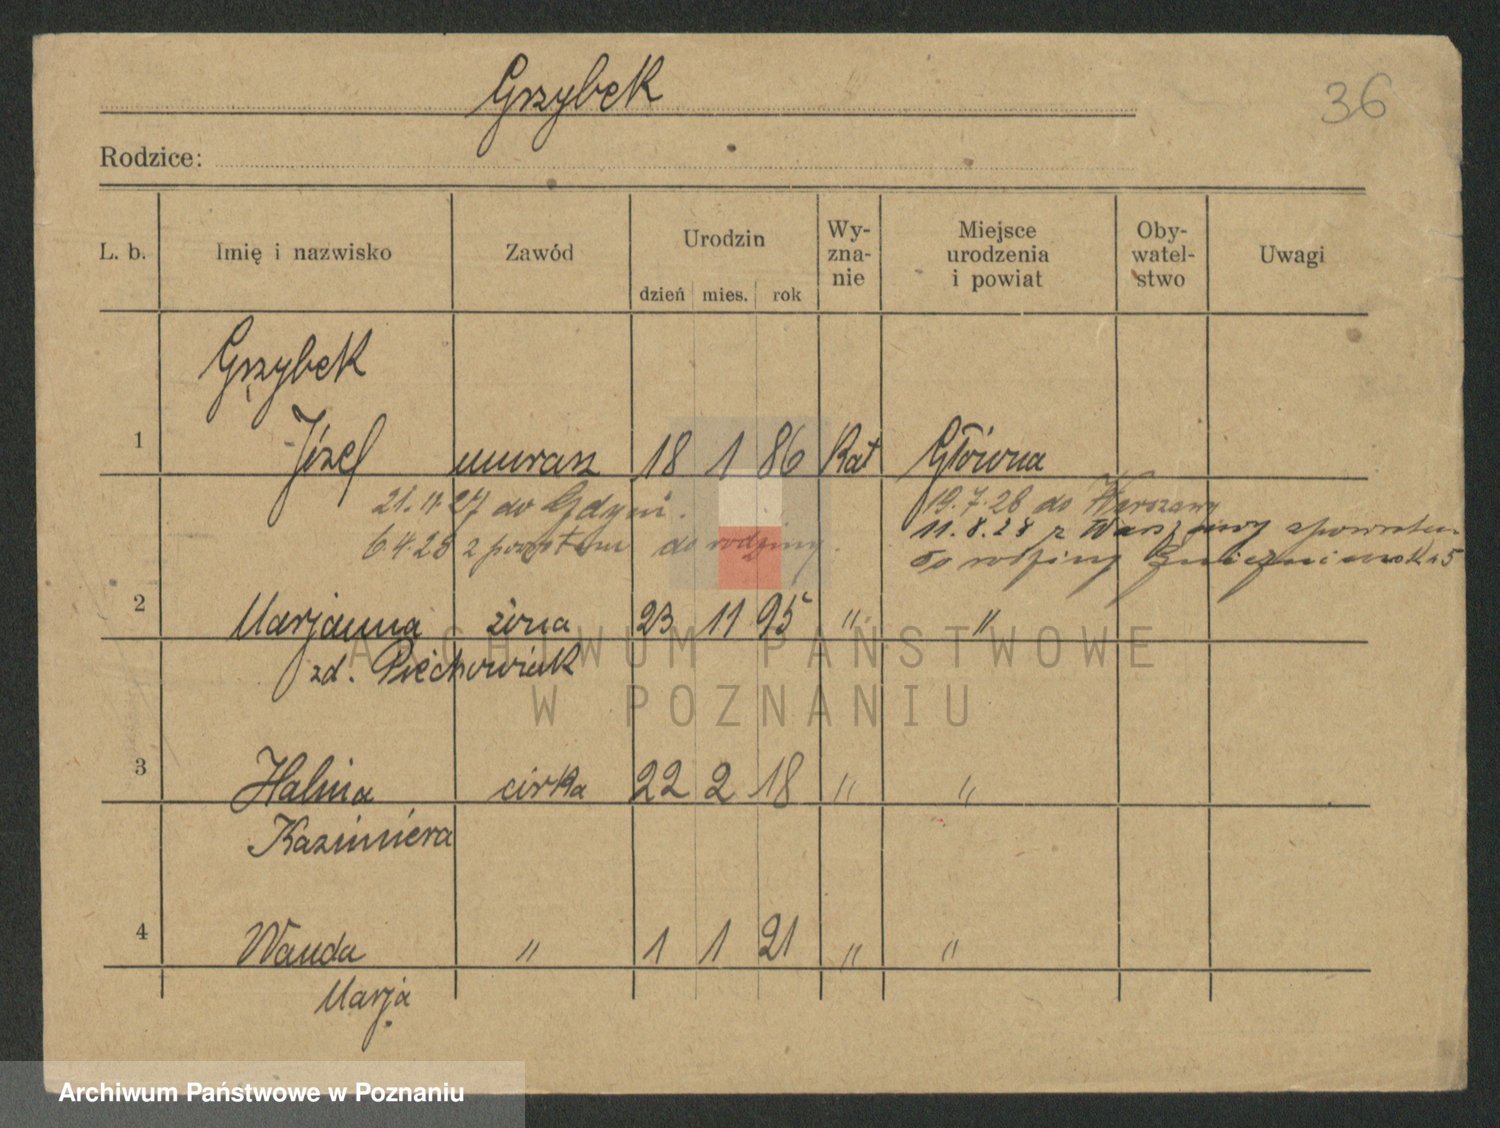 Grzybek
36
Rodzice:
L. b. Imię i nazwisko Zawód Urodzin dzień mies. rok Wy-zna-nie Miejsce urodzenia i powiat Oby-watel-stwo Uwagi
Grzybek
1 Józef murarz 18 1 86 Kat Główna
21.11.27 do Gdyni. 19.7.28 do Warszawy
6.4.28 z powrotem do rodziny. 11.8.28 z Warszawy spowrotem
do rodziny
2 Marjanna żona 23 11 95 " "
zd. Piechowiak
ARCHIWUM PAŃSTWOWE
W POZNANIU
3 Halina córka 22 2 18 " "
Kazimiera
4 Wanda " 1 1 21 " "
Marja
Archiwum Państwowe w Poznaniu